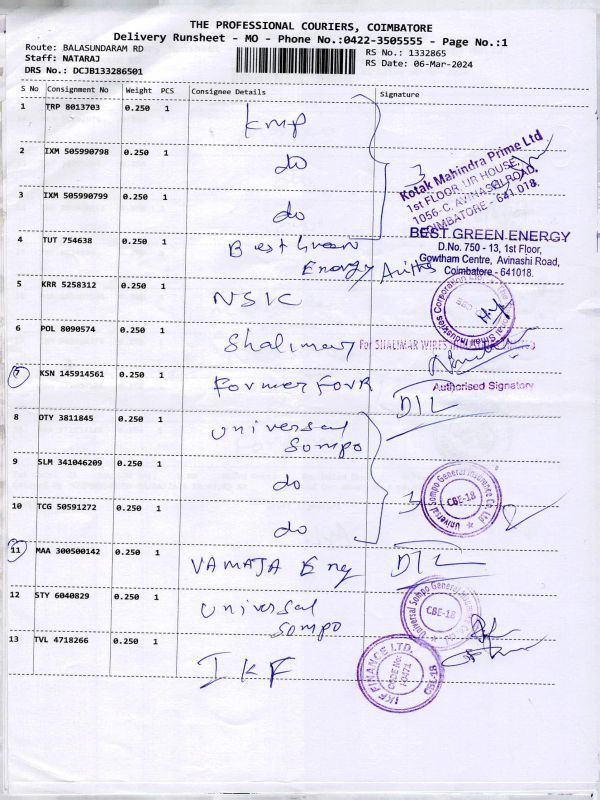 THE PROFESSIONAL COURIERS, COIMBATORE
Delivery Runsheet - MO - Phone No.:0422-3505555 - Page No.:1
Route: BALASUNDARAM RD
RS No.: 1332865
Staff: NATARAJ
RS Date: 06-Mar-2024
DRS No.: DCJB133286501
S No Consignment No Weight PCS Consignee Details Signature
1 TRP 8013703 0.250 1 kmp
2 IXM 505990798 0.250 1 do
3 IXM 505990799 0.250 1 do
3
Kotak Mahindra Prime Ltd
1st FLOOR, UR HOUSE,
1056-C, AVINASHI ROAD,
COIMBATORE - 641 018.
4 TUT 754638 0.250 1 Best Green
Energy
BEST GREEN ENERGY
D.No. 750 - 13, 1st Floor,
Gowtham Centre, Avinashi Road,
Coimbatore - 641018.
5 KRR 5258312 0.250 1 NSIC
6 POL 8090574 0.250 1 Shalimar
For SHALIMAR WIRES
Authorised Signatory
7 KSN 145914561 0.250 1 Former FOUR DIL
8 DTY 3811845 0.250 1 universal
Sompo
9 SLM 341046209 0.250 1 do
10 TCG 50591272 0.250 1 do
3
Universal Sompo General Insurance Co. Ltd
CBE-18
11 MAA 300500142 0.250 1 VAMAJA Eng DIL
12 STY 6040829 0.250 1 universal
Sompo
Universal Sompo General
CBE-18
13 TVL 4718266 0.250 1 IKF
IKF FINANCE LTD.
CODE No:
CBE-18